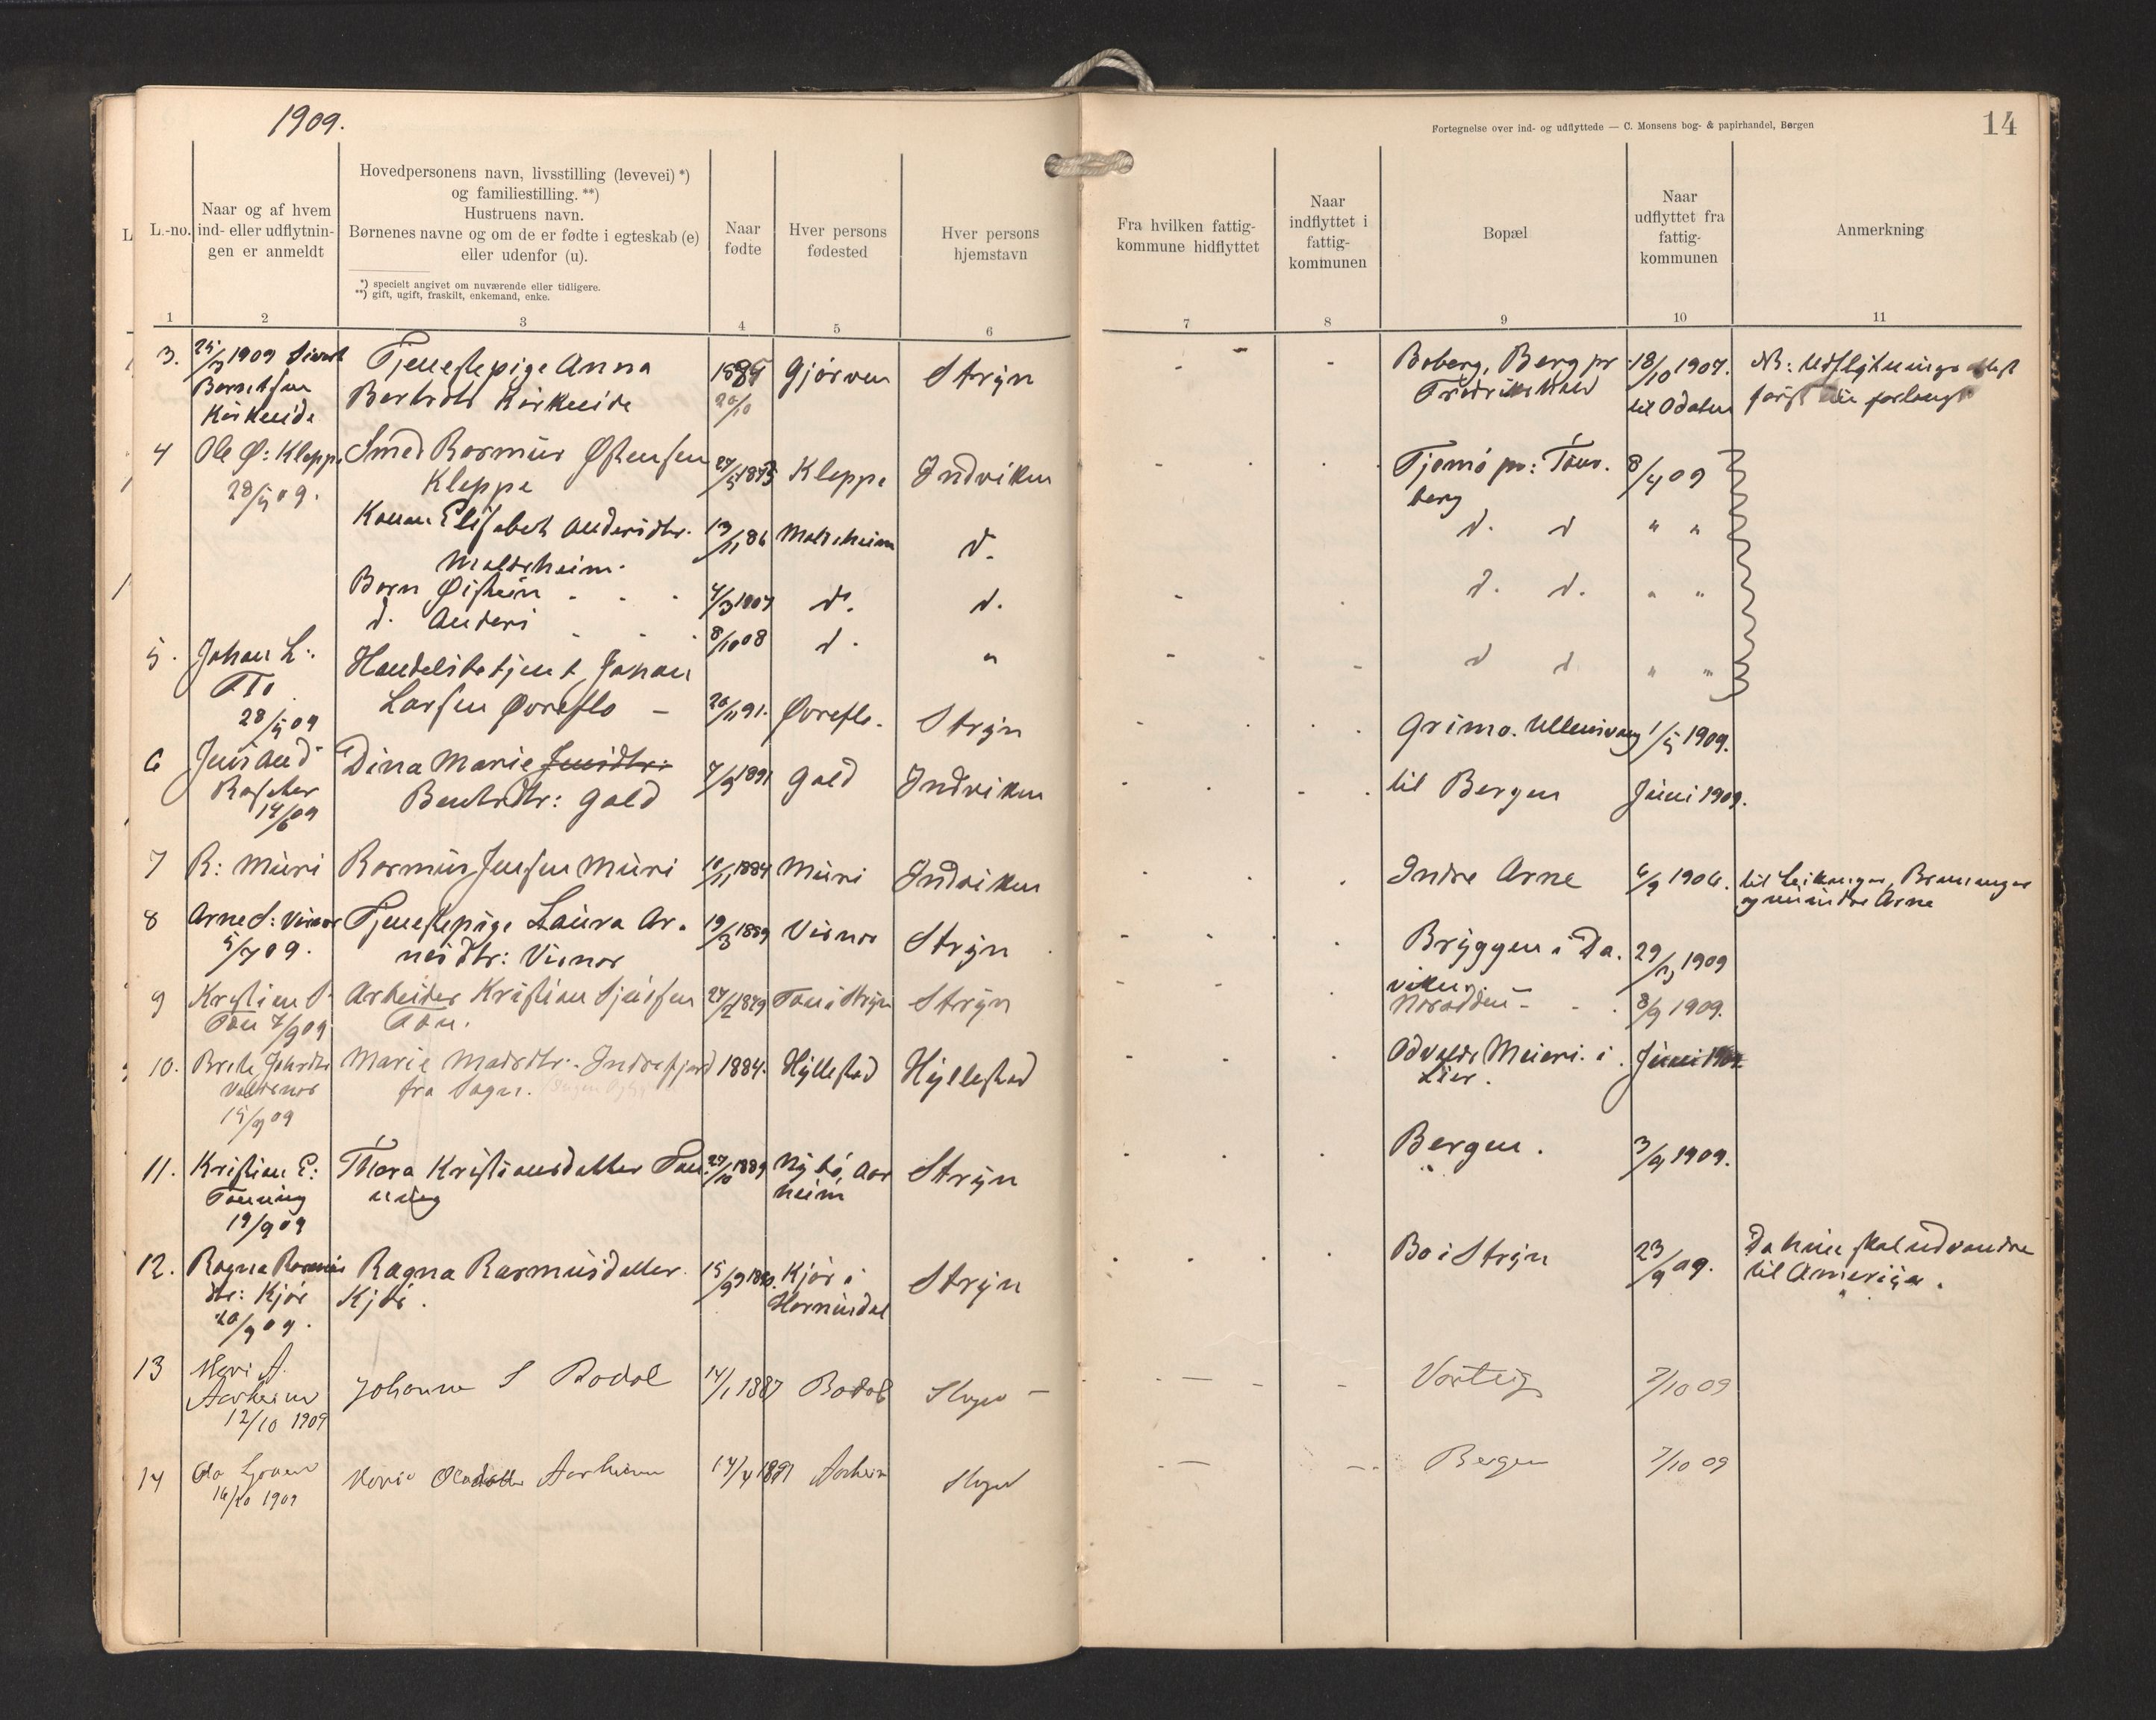 1909.
Fortegnelse over ind- og udflyttede — C. Monsens bog- & papirhandel, Bergen
14
L.-no.
Naar og af hvem
ind- eller udflytnin-
gen er anmeldt
Hovedpersonens navn, livsstilling (levevei) *)
og familiestilling. **)
Hustruens navn.
Børnenes navne og om de er fødte i egteskab (e)
eller udenfor (u).
*) specielt angivet om nuværende eller tidligere.
**) gift, ugift, fraskilt, enkemand, enke.
Naar
fødte
Hver persons
fødested
Hver persons
hjemstavn
Fra hvilken fattig-
kommune hidflyttet
Naar
indflyttet i
fattig-
kommunen
Bopæl
Naar
udflyttet fra
fattig-
kommunen
Anmerkning
1 2 3 4 5 6 7 8 9 10 11
3. 1909 Sivert Tjenestepige Anna Gjørven Stryn - - - Boberg, Berg pr 18/10 1907. NB: Udflytnings
Berntsen Berntsdtr Kirkeeide 20/10 Fredrikshald til Odalen først
Kirkeeide
4 Ole Ø: Kleppe Smed Rasmus Østensen Kleppe Indviken Tjømø pr: Tøns- 8/4 09
28/5 09. Kleppe berg
Elisabet Andersdtr. 13/11 86 Maldeheim d. d. d " "
Maldeheim.
Barn Øistein 4/3 1907 d. d. d. d. " "
d. Anders 8/10 08 d. " d d " "
5. Johan L: Handelsbetjent Johan
Flo Larsen Øvreflo - 20/11 91. Øvreflo. Stryn Grimo. Ullensvang 1/5 1909.
28/5 09
6 Jens And Dina Marie Jensdtr: 7/9 1891 Gald Indviken til Bergen Juni 1909.
14/6 09 Bentsdtr: Gald
7 R: Muri Rasmus Jensen Muri 10/11 1884 Muri Indviken Indre Arne 6/9 1906. til Leikanger,
og nu indre Arne
8 Arne S: Visnes Tjenestepige Laura Ar- 19/3 1889 Visnes Stryn Bryggen i Da- 29/ 1909
5/7 09. nesdtr: Visnes viken
9 Kristian S. Arbeider Kristian Sjursen 27/2 1879 Ton i Stryn Stryn 8/9 1909.
Ton 7/9 09 Ton.
10. Brite Marie Madsdtr. Indrefjord 1884. Hyllestad Hyllestad Meieri i Juni
15/9 09 fra Sogn. Lier.
11. Kristian E: Thora Kristiansdatter Ton- 27/10 1889 Nybø, Aar- Stryn Bergen. 3/9 1909.
Tonning ning heim "
19/9 09
12. Ragna Rasmus Ragna Rasmusdatter 15/9 Kjøs i Stryn Bø i Stryn 23/9 09. Da hun skal udvandre
dtr: Kjøs Kjøs. Hornindal til Amerika.
20/9 09.
13 Mari A. Johanne S Bødal 14/1 1887 Bødal Stryn - - Varteig 7/10 09
Aarheim
12/10 1909
14 Ola Marie Oladotter Aarheim 14/4 1891 Aarheim Stryn Bergen 7/10 09
16/10 1909